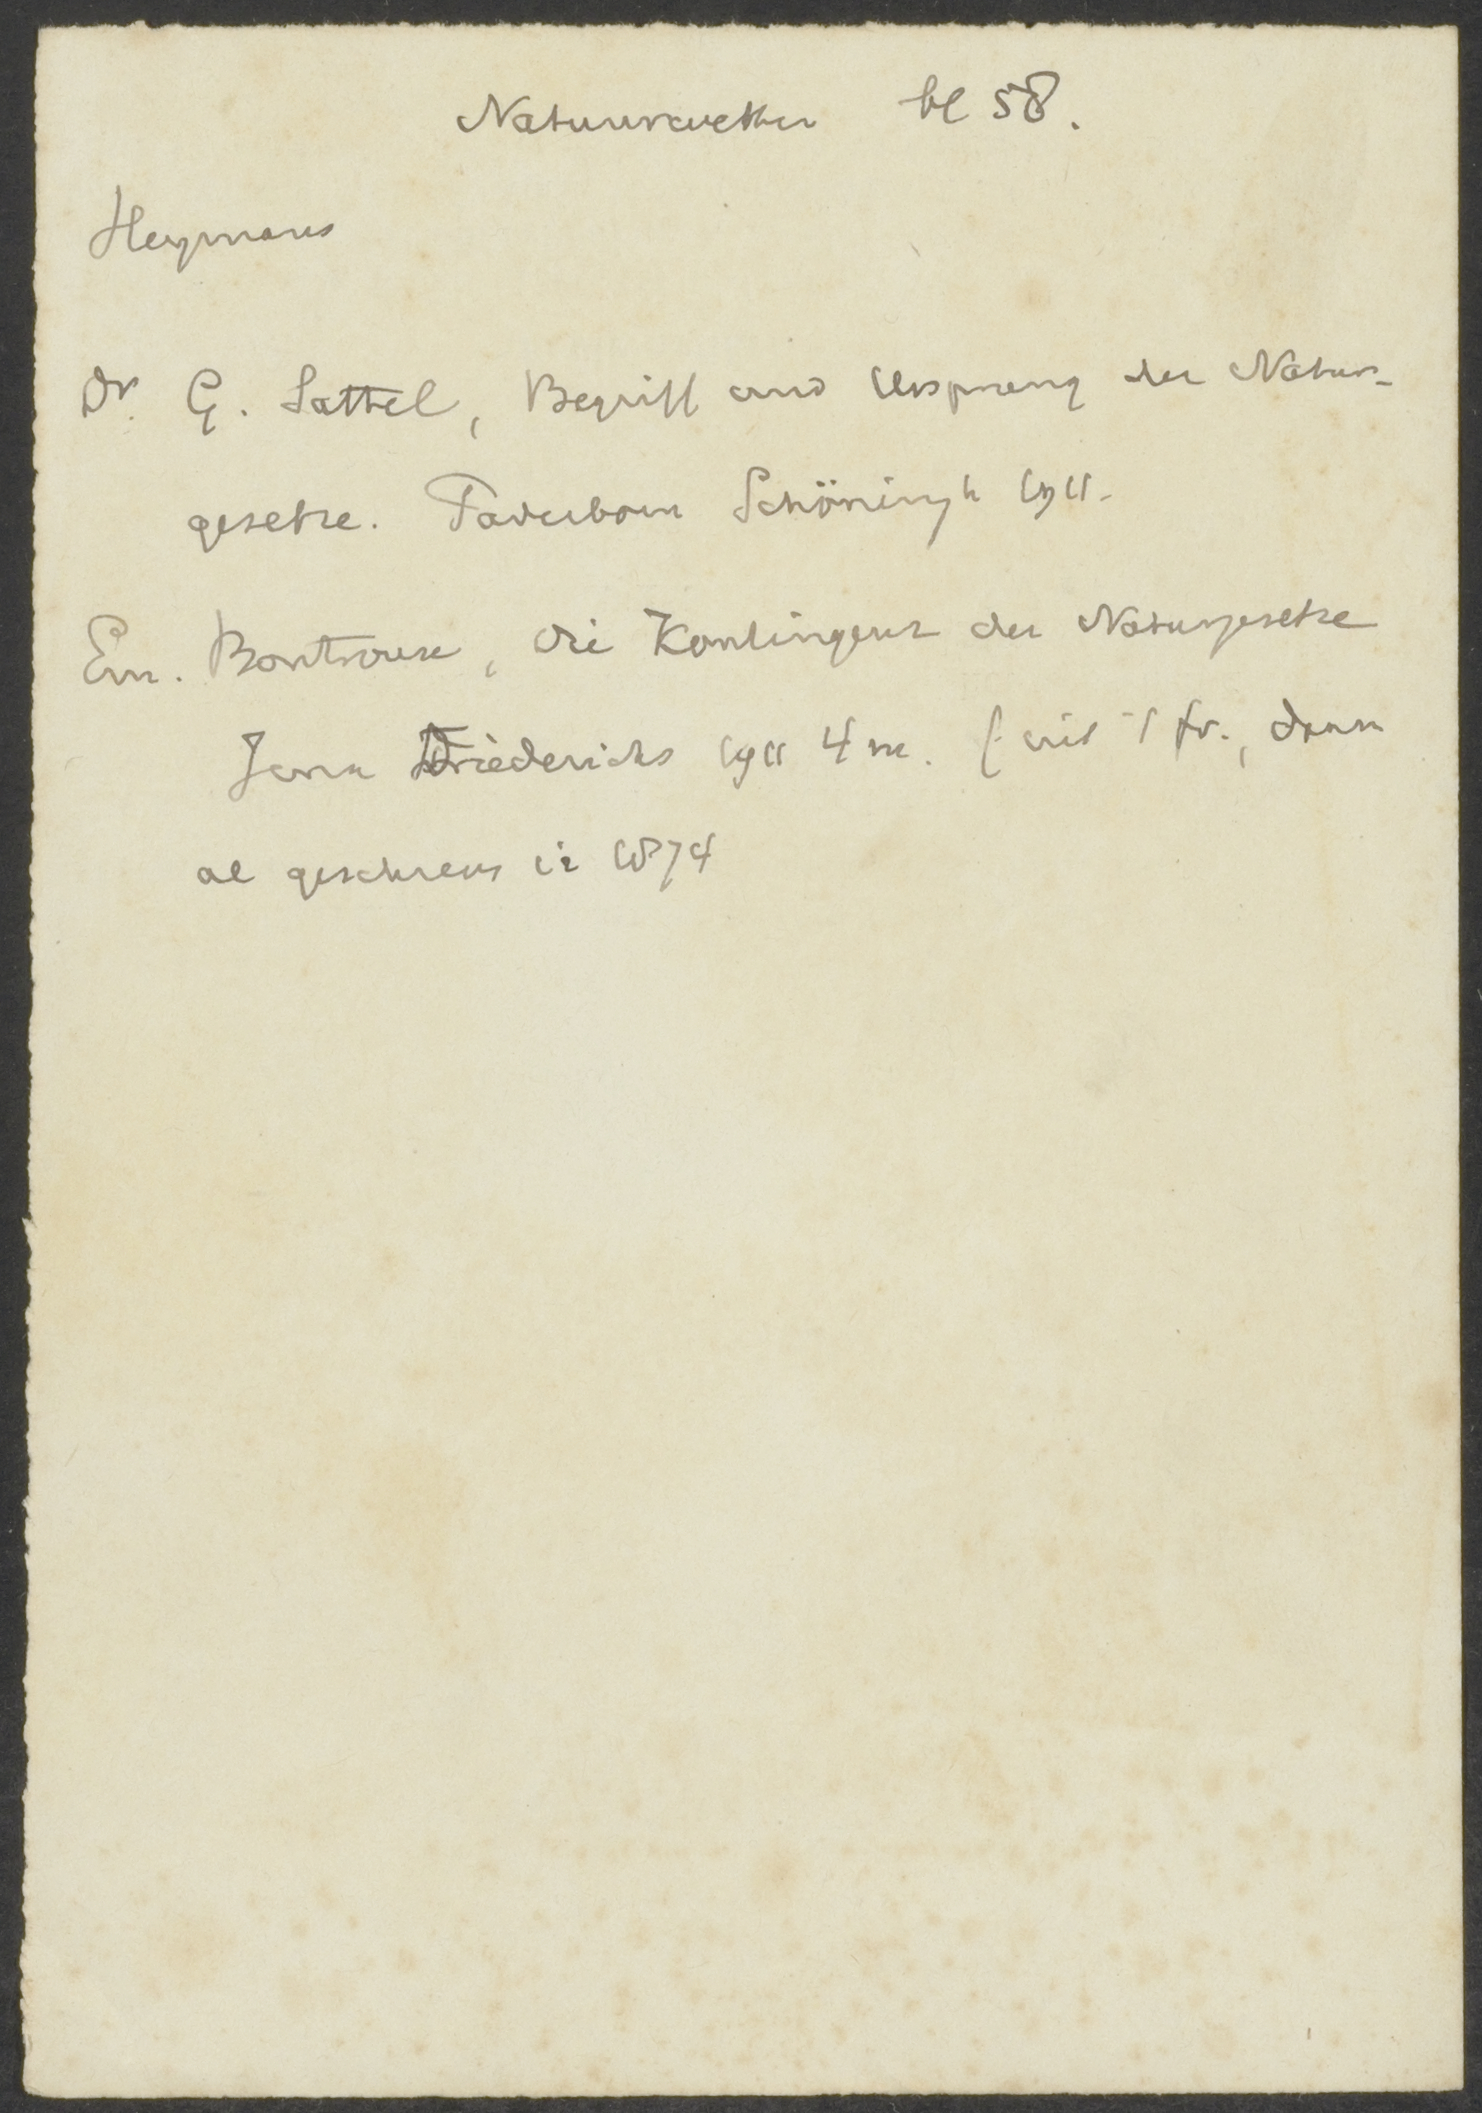 Natuurwetten bl 58.
Heymans
Dr. G. Sattel, Begriff und Ursprung der Natur-
gesetze. Paderborn Schöningh 1911.
Em. Boutroux, Die Kontingenz der Naturgesetze
Jena Diederichs 1911 4 m. (uit 't fr., daar
al geschreven in 1874